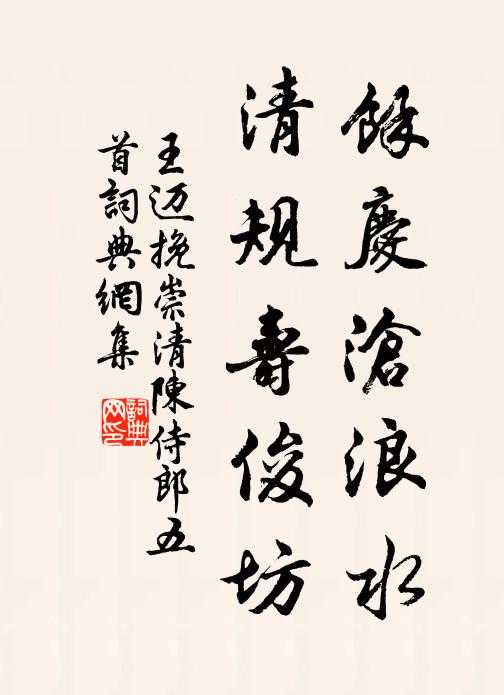 餘慶滄浪水
清規壽俊坊
王迈挽崇清陳侍郎五
首詞典網集
詞典
网印